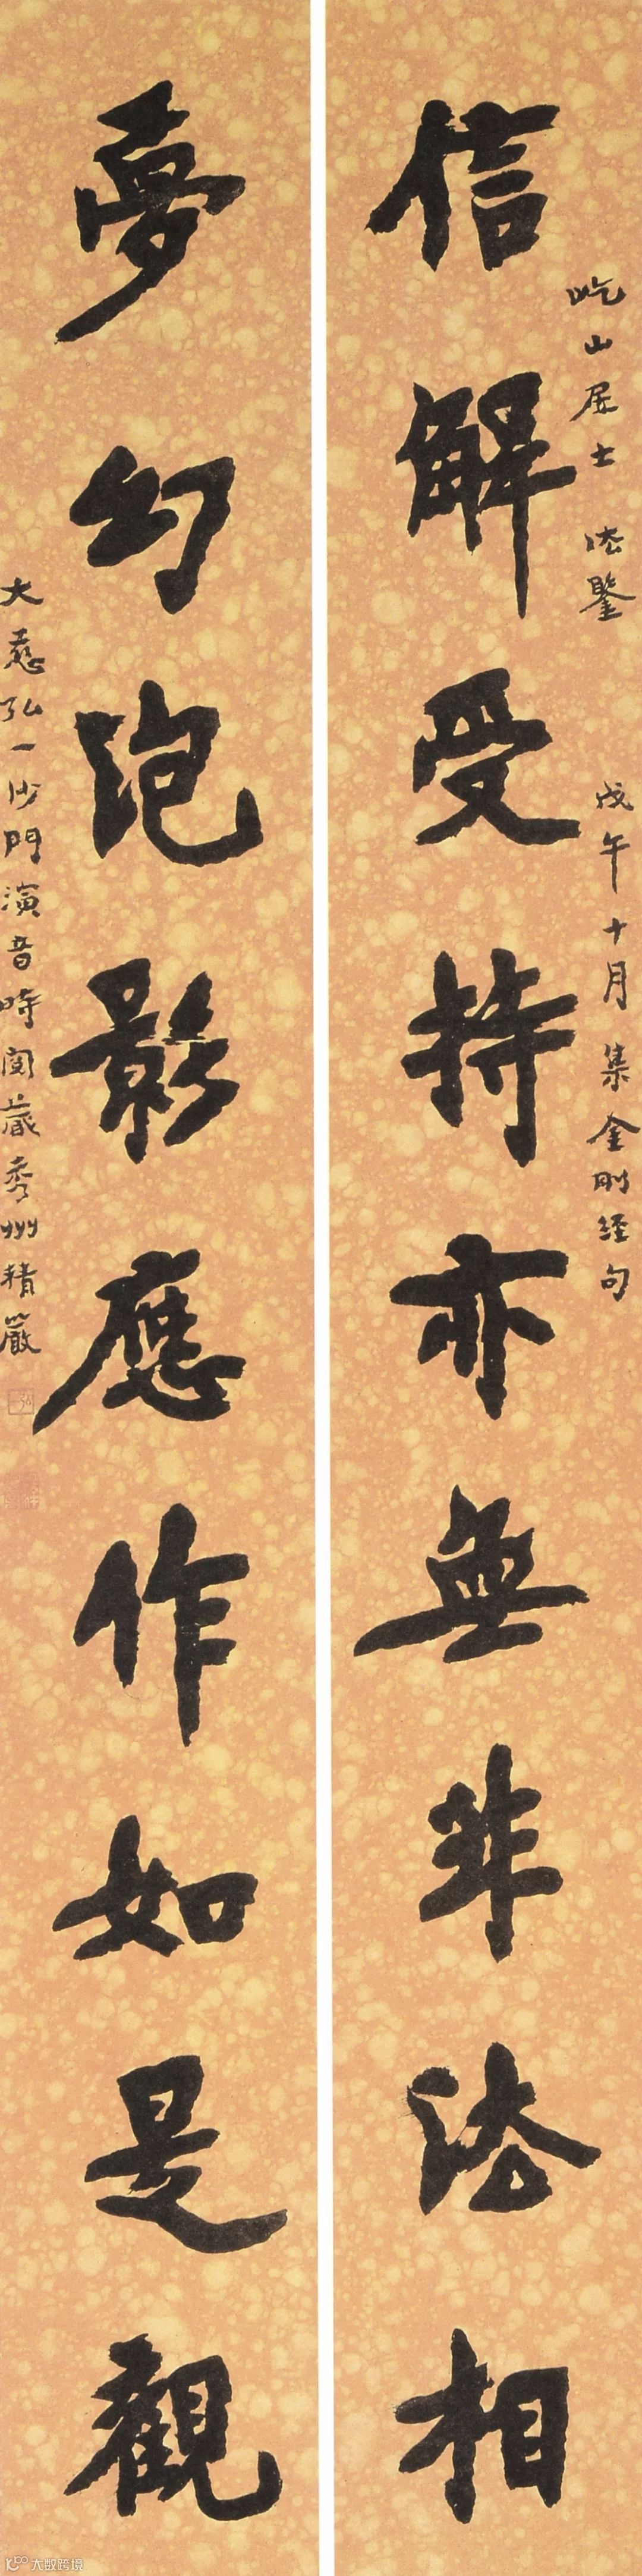 屹山居士 法鑒 戊午十月集金剛經句
信解受持亦無非法相
夢幻泡影應作如是觀
大慈弘一沙門演音時閱藏秀州精嚴
大數跨境